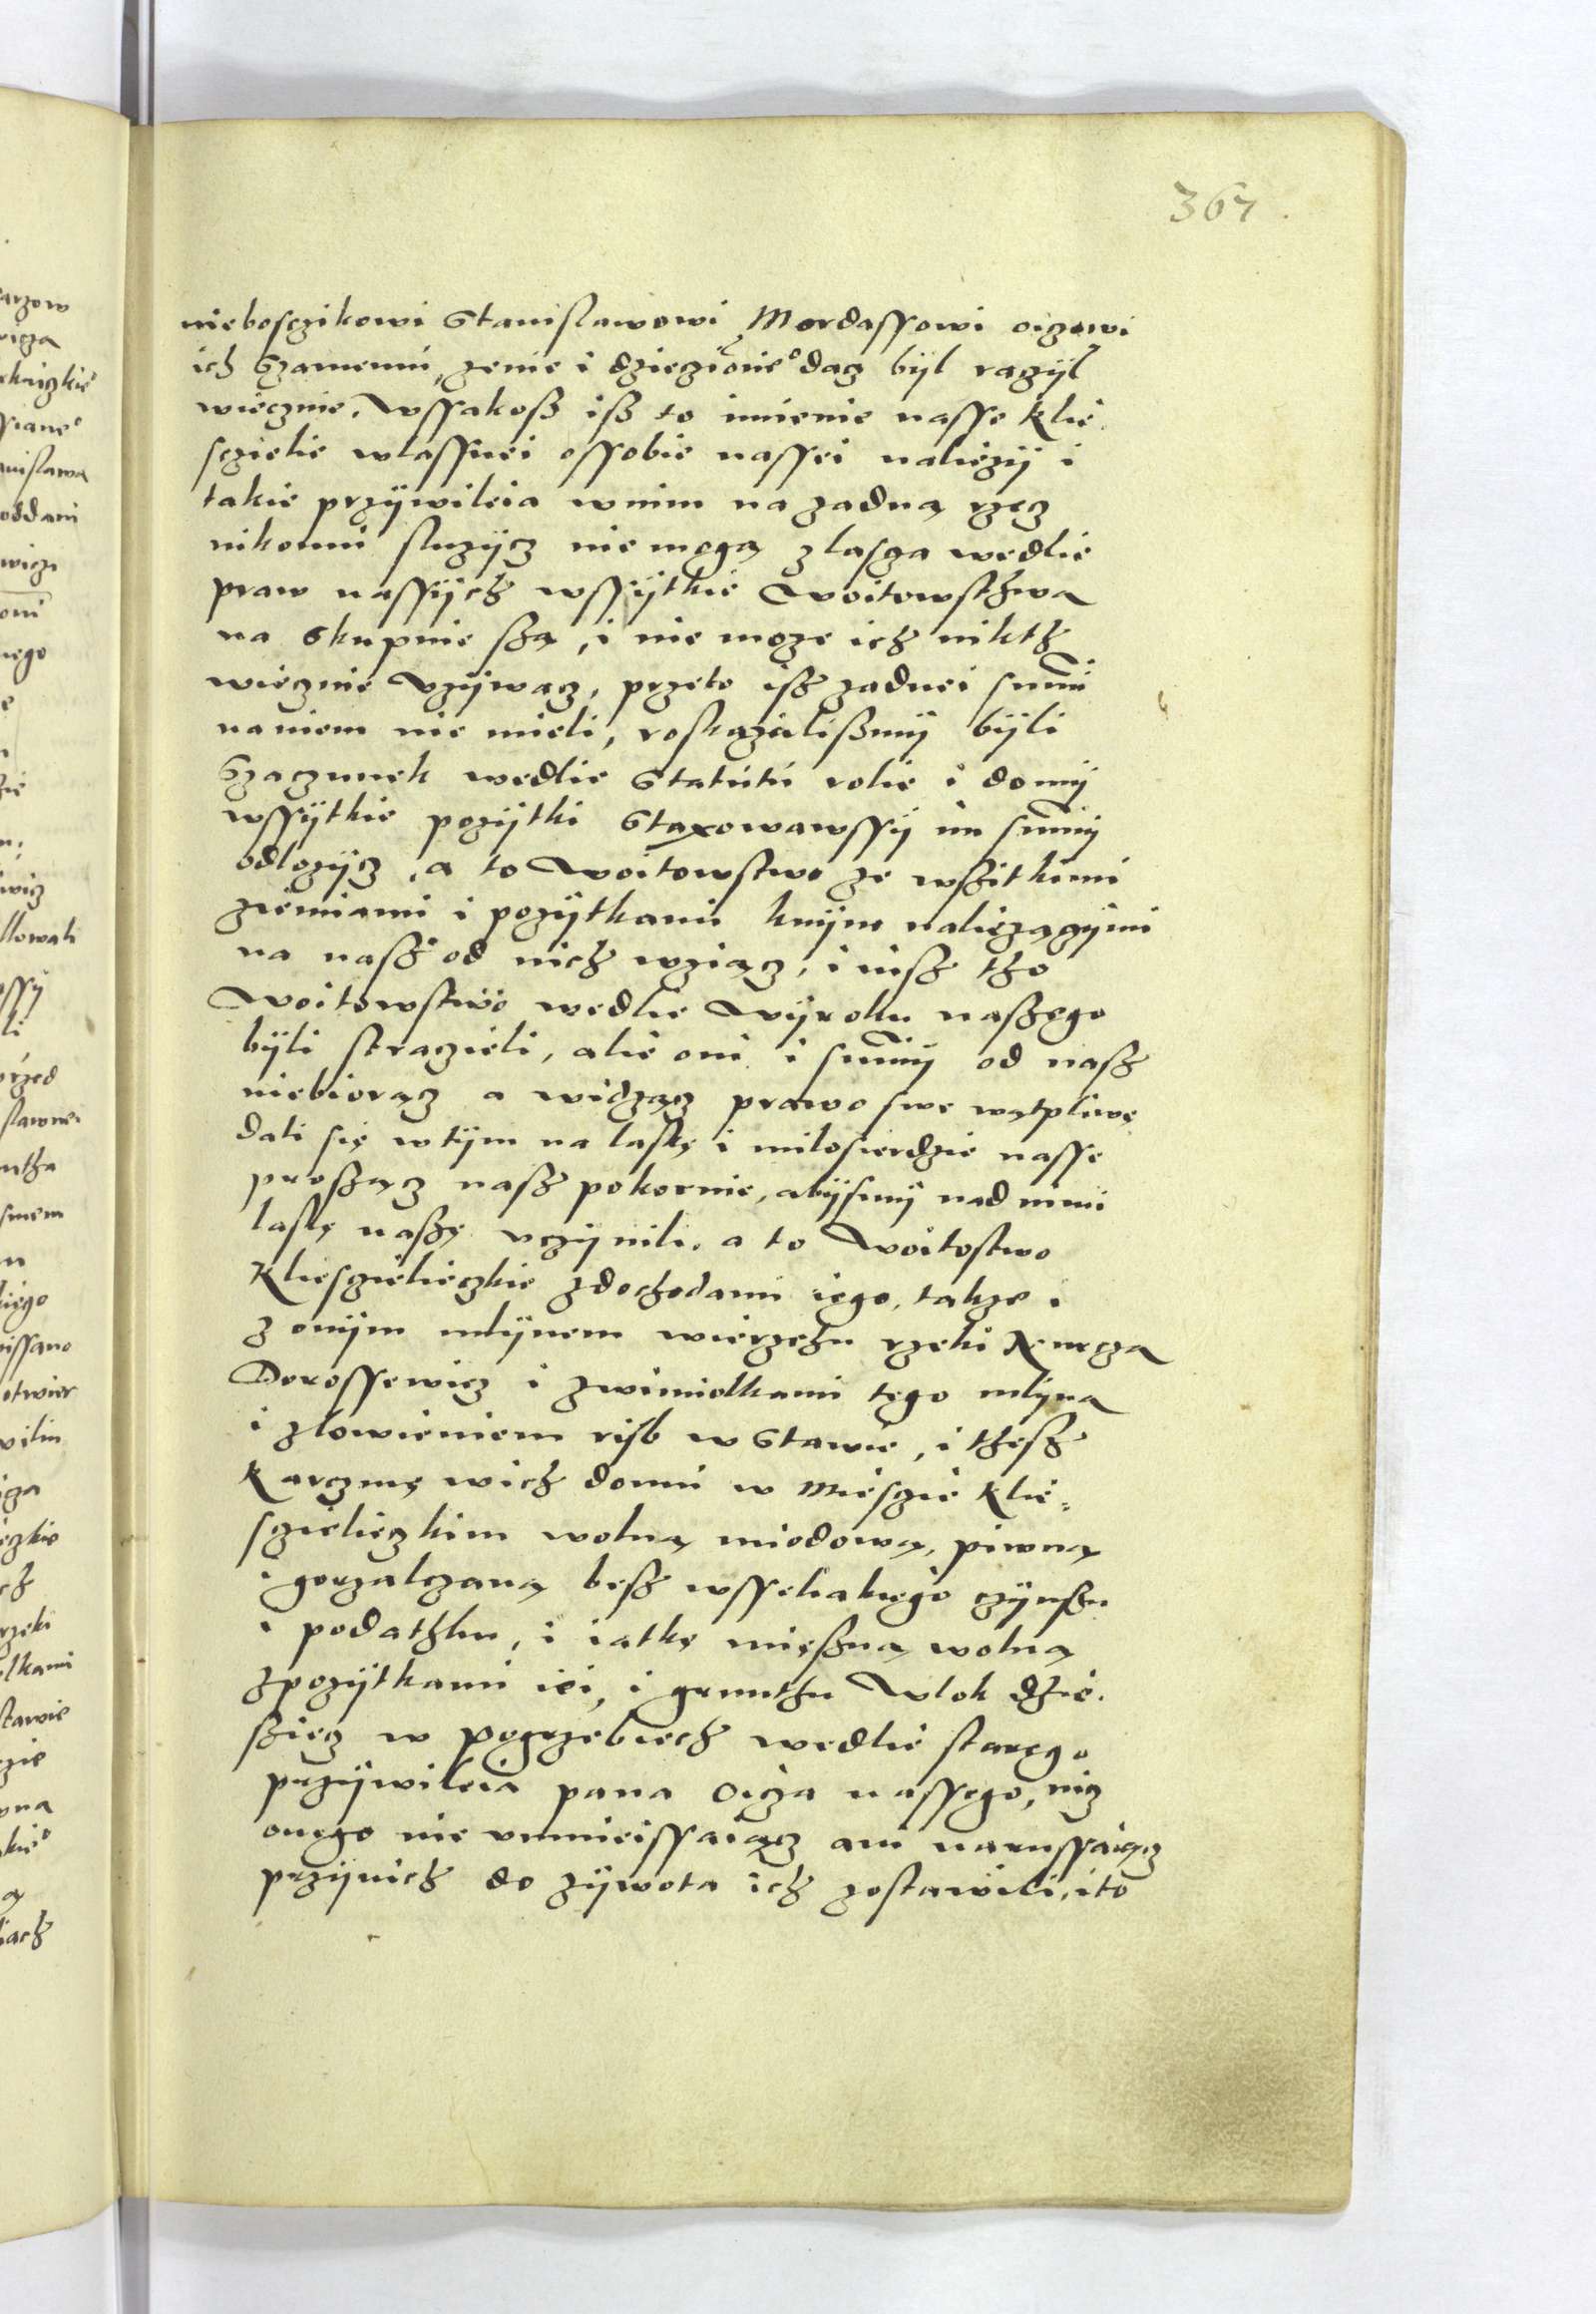 367
niebosczikowi Stanislawowi Mordassowi oiczowi
ich Szamemu, zenie i dzieczi onie° dacz byl raczÿl
wiecznie. Wssakosz isz to imienie nasse Klie
sczielie wlassnei ossobie nassei naliezÿ i
takie przÿwileia wnim na zadną rzecz
nikomu sluzÿcz nie mogą zlascza wedlie
praw nassÿch wssÿtkie Woitowsthwa
na Skupnie szą, i nie moze ich nikth
wiecznie Vzÿwacz, przeto isz zadnei summi
naniem nie mieli, roskazalismÿ bÿli
Szaczunek wedlie Statutu rolie i domÿ
wssÿtkie pozÿtki Staxowawssÿ im summÿ
odlozÿcz, a to Woitowstwo ze wszitkimi
ziemiami i pozÿtkami knÿm naliezączÿmi
na nasz od nich wziącz, i iusz tho
Woitowstwo wedlie Wÿroku naszego
bÿli straczieli, alie oni i summÿ od nasz
niebiorącz a widzącz prawo swe wątpliwe
dali się wtÿm na laskę i milosierdzie nasse
proszącz nasz pokornie, abÿsmÿ nad nimi
laskę naszę vczÿnili, a to Woitostwo
Kliesczielieczkie zdochodami iego, takze i
z onÿm mlÿnem wierzchu rzeki Nurcza
Dorossewicz i zwimiolkami tego mlÿna
i zlowieniem rÿb w Stawie, i thesz
Karczmę wich domu w Miesczie Klie=
sczielieczkim wolną miodową, piwną
i gorzalczaną besz wsseliakiego czÿnszu
i podathku, i iatkę mięszną wolną
zpozÿtkami iei, i grunthu Wlok dzie
szięcz w Pogrzebiech wedlie starego
przÿwileia pana Oicza nassego, nicz
onego nie vmnieissaiącz ani narussaiącz
przÿnich do zÿwota ich zostawili, ito